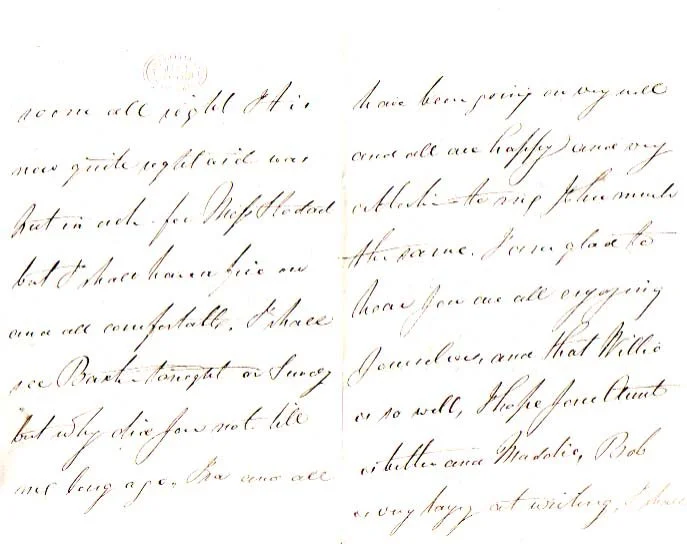 room all right It is
now quite right and was
put in order for Miss
but I shall have a fire on
and all comfortable. I shall
see tonight or Sunday
but why did you not tell
me long ago. and all
have been going on very well
and all are happy and very
to me, John much
the same. I am glad to
hear you are all enjoying
yourselves, and that Willie
is so well, I hope your Aunt
is better and Maddie, Bob
is very lazy at writing, I shall